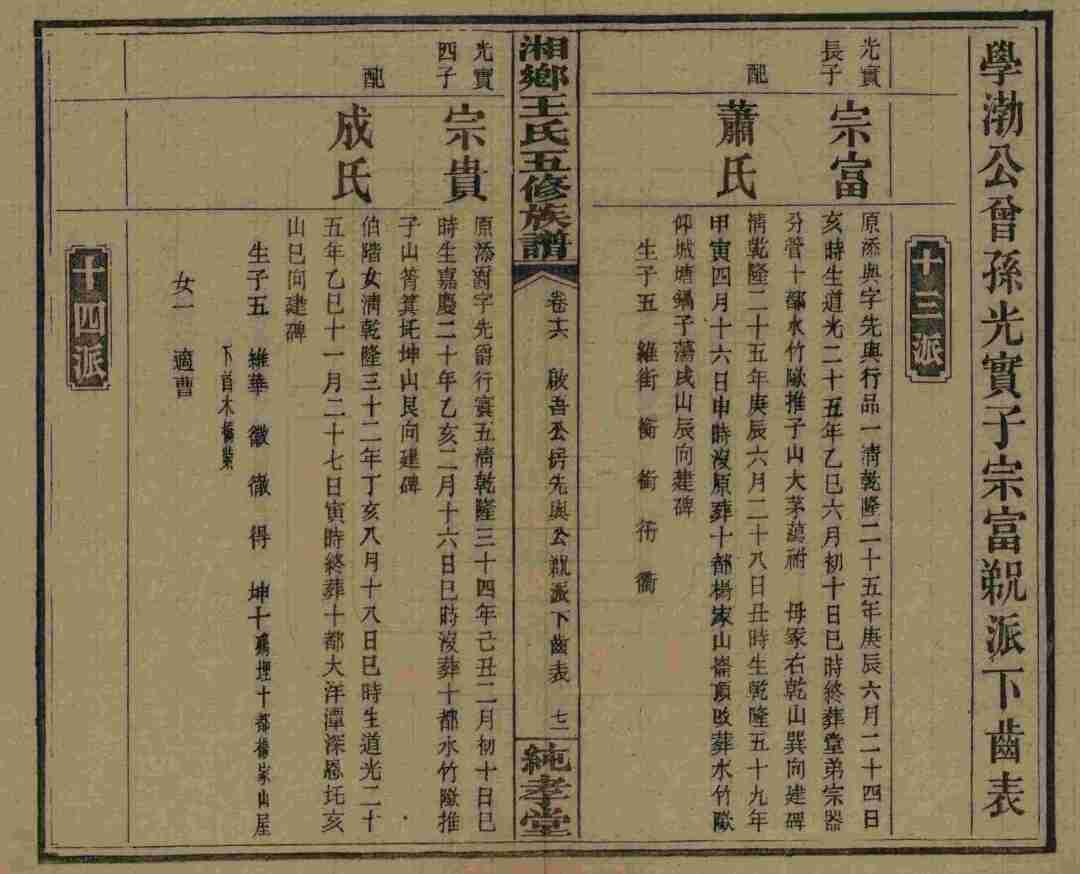 學渤公曾孫光實子宗富覣派下齒表
十三派
光實長子
宗富
原添與字先與行品一清乾隆二十五年庚辰六月二十四日
亥時生道光二十五年乙巳六月初十日巳時終葬堂弟宗器
分管十都水竹歐推子山大茅蕅祔 母冢右乾山巽向建碑
配
蕭氏
清乾隆二十五年庚辰六月二十八日丑時生乾隆五十九年
甲寅四月十六日申時沒原葬十都楊家山崙頂改葬水竹歐
仰城塘鍋子蕩戌山辰向建碑
生子五 維街 衡 衝 衙 衢
湘鄉王氏五修族譜
卷六 啟吾公房先與公覣派下齒表 七一
純孝堂
光實四子
宗貴
原添爵字先爵行寰五清乾隆三十四年己丑二月初十日巳
時生嘉慶二十年乙亥二月十六日巳時沒葬十都水竹歐推
子山筲箕坵坤山艮向建碑
配
成氏
伯階女清乾隆三十二年丁亥八月十八日巳時生道光二十
五年乙巳十一月二十七日寅時終葬十都大洋潭深恩坵亥
山巳向建碑
生子五 維華 徽 徹 得 坤十殤埋十都楊家山屋
下首木橋
女一 適曹
十四派